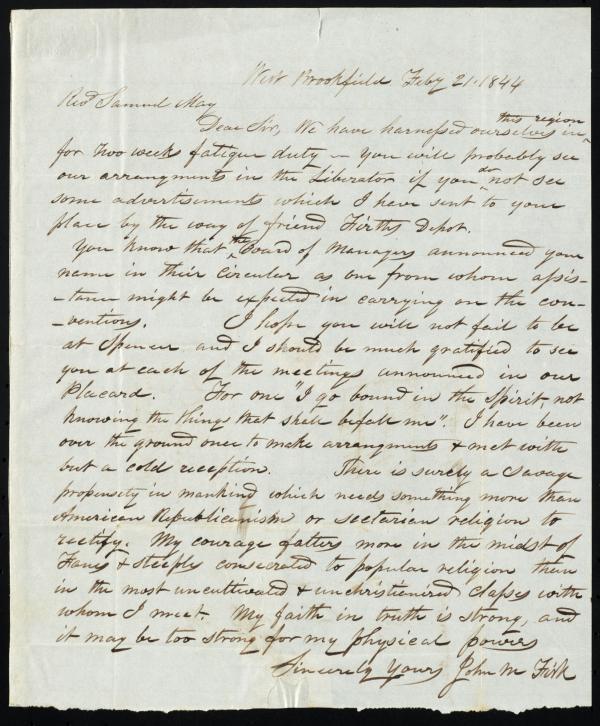 West Brookfield Feby 21. 1844
Revd Samuel May
Dear Sir, We have harnessed ourselves in this region
for two weeks fatigue duty — You will probably see
our arrangments in the Liberator if you do not see
some advertisements which I have sent to your
place by the way of friend Firths Depot.
You know that the Board of Managers announced your
name in their circular as one from whom assis-
-tance might be expected in carrying on the con-
-ventions. I hope you will not fail to be
at Spencer and I should be much gratified to see
you at each of the meetings announced in our
Placard. For one "I go bound in the Spirit, not
knowing the things that shall befall me". I have been
over the ground once to make arrangments & met with
but a cold reception. There is surely a savage
propensity in mankind which needs something more than
American Republicanism or sectarian religion to
rectify. My courage falters more in the midst of
Fanes & steeples consecrated to popular religion then
in the most uncultivated & unchristianized classes with
whom I meet. My faith in truth is strong, and
it may be too strong for my physical powers
Sincerely Yours John M Fisk